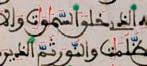 لله الذي خلق السموت والا
ظلمت والنور ثم الذين